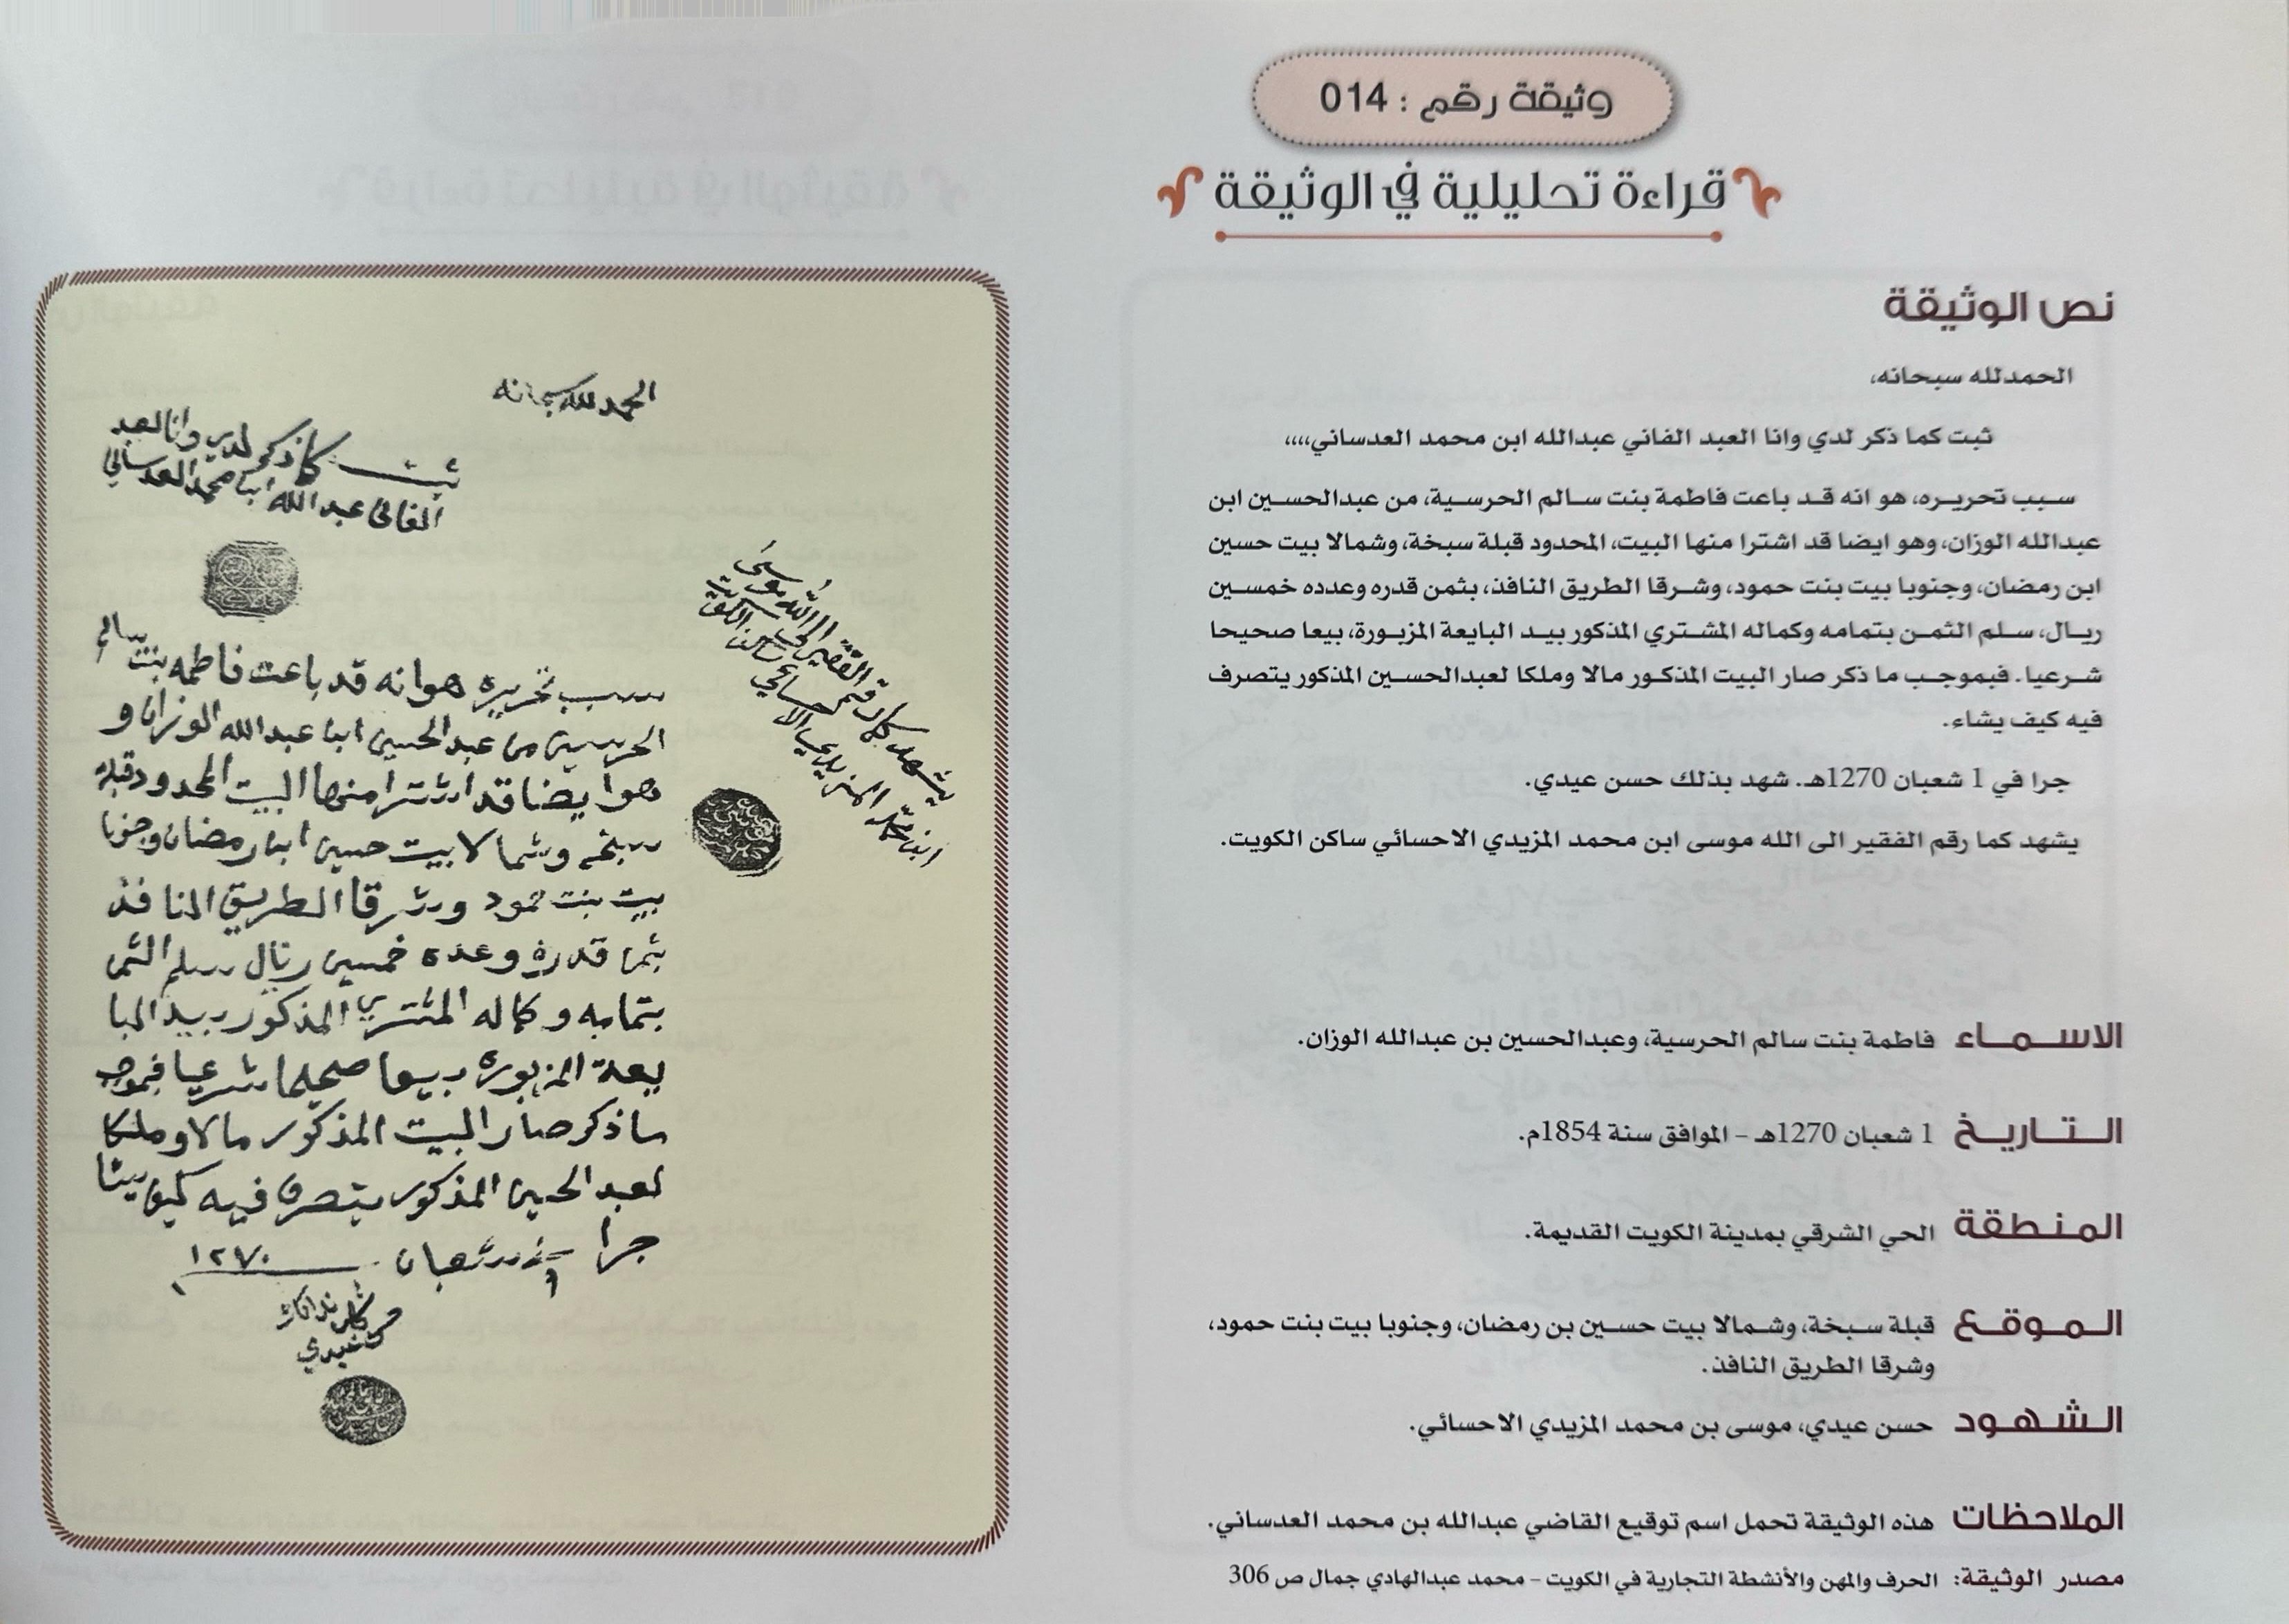 وثيقة رقم : 014
قراءة تحليلية في الوثيقة
نص الوثيقة
الحمدلله سبحانه،
ثبت كما ذكر لدي وانا العبد الفاني عبدالله ابن محمد العدساني،،،،
سبب تحريره، هو انه قد باعت فاطمة بنت سالم الحرسية، من عبدالحسين ابن
عبدالله الوزان، وهو ايضا قد اشترا منها البيت، المحدود قبلة سبخة، وشمالا بيت حسين
ابن رمضان، وجنوبا بيت بنت حمود، وشرقا الطريق النافذ، بثمن قدره وعدده خمسين
ريال، سلم الثمن بتمامه وكماله المشتري المذكور بيد البايعة المزبورة، بيعا صحيحا
شرعيا. فبموجب ما ذكر صار البيت المذكور مالا وملكا لعبدالحسين المذكور يتصرف
فيه كيف يشاء.
جرا في 1 شعبان 1270هـ. شهد بذلك حسن عيدي.
يشهد كما رقم الفقير الى الله موسى ابن محمد المزيدي الاحسائي ساكن الكويت.
الاسماء فاطمة بنت سالم الحرسية، وعبدالحسين بن عبدالله الوزان.
التاريخ 1 شعبان 1270هـ – الموافق سنة 1854م.
المنطقة الحي الشرقي بمدينة الكويت القديمة.
الموقع قبلة سبخة، وشمالا بيت حسين بن رمضان، وجنوبا بيت بنت حمود،
وشرقا الطريق النافذ.
الشهود حسن عيدي، موسى بن محمد المزيدي الاحسائي.
الملاحظات هذه الوثيقة تحمل اسم توقيع القاضي عبدالله بن محمد العدساني.
مصدر الوثيقة: الحرف والمهن والأنشطة التجارية في الكويت – محمد عبدالهادي جمال ص 306
الحمد لله سبحانه
ثبت كما ذكر لدي وانا العبد
الفاني عبدالله ابن محمد العدساني
يشهد كما رقم الفقير الى الله موسى
ابن محمد المزيدي الاحسائي ساكن الكويت
سبب تحريره هو انه قد باعت فاطمه بنت سالم
الحرسية من عبد الحسين ابن عبدالله الوزان و
هو ايضا قد اشترا منها البيت المحدود قبلة
سبخه وشمالا بيت حسين ابن رمضان وجنوبا
بيت بنت حمود وشرقا الطريق النافذ
بثمن قدره وعدده خمسين ريال سلم الثمن
بتمامه وكماله المشتري المذكور بيد البا
يعة المزبوره بيعا صحيحا شرعيا فبموجب
ما ذكر صار البيت المذكور مالا وملكا
لعبد الحسين المذكور يتصرف فيه كيف يشا
جرا في ١ شعبان ١٢٧٠
حسن عيدي